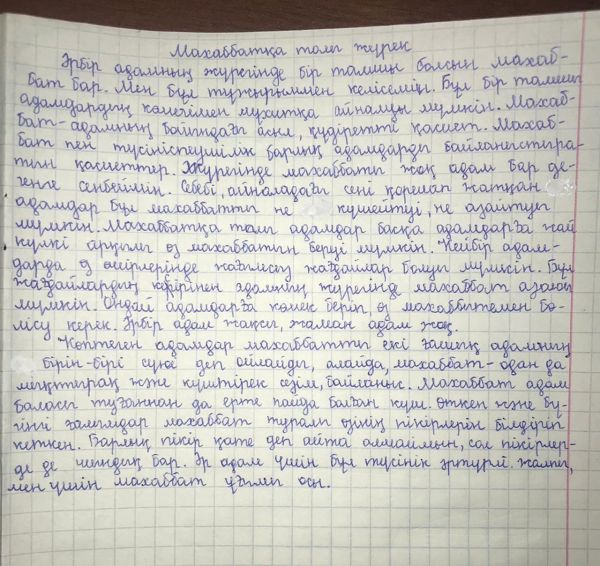 Махаббатқа толы жүрек
Әрбір адамның жүрегінде бір тамшы болсын махаб-
бат бар. Мен бұл тұжырыммен келісемін. Бұл бір тамшы
адамдардың көмегімен мұхитқа айналуы мүмкін. Махаб-
бат-адамның бойындағы асыл, құдіретті қасиет. Махаб-
бат пен түсініспеушілік барлық адамдарды байланыстыра-
тын қасиеттер. Жүрегінде махаббаты жоқ адам бар де-
генге сенбеймін. Себебі, айналадағы сені қоршап жатқан
адамдар бұл махаббатты не күшейтуі, не азайтуы
мүмкін. Махаббатқа толы адамдар басқа адамдарға жай
күлкі арқылы өз махаббатын беруі мүмкін. Кейбір адам-
дарда өз өмірлерінде жағымсыз жағдайлар болуы мүмкін. Бұл
жағдайлардың кесірінен адамның жүрегінде махаббат азаюы
мүмкін. Ондай адамдарға көмек беріп, өз махаббатымен бө-
лісу керек. Әрбір адам жақсы, жаман адам жоқ.
Көптеген адамдар махаббатты екі ғашық адамның
бірін-бірі сүюі деп ойлайды, алайда, махаббат-одан да
мықтырақ және күштірек сезім, байланыс. Махаббат адам
баласы туғаннан да ерте пайда болған күш. Өткен және бү-
гінгі ғалымдар махаббат туралы өзінің пікірлерін білдіріп
кеткен. Барлық пікір қате деп айта алмаймын, сол пікірлер-
де де шындық бар. Әр адам үшін бұл түсінік әртүрлі. Жалпы,
мен үшін махаббат ұғымы осы.